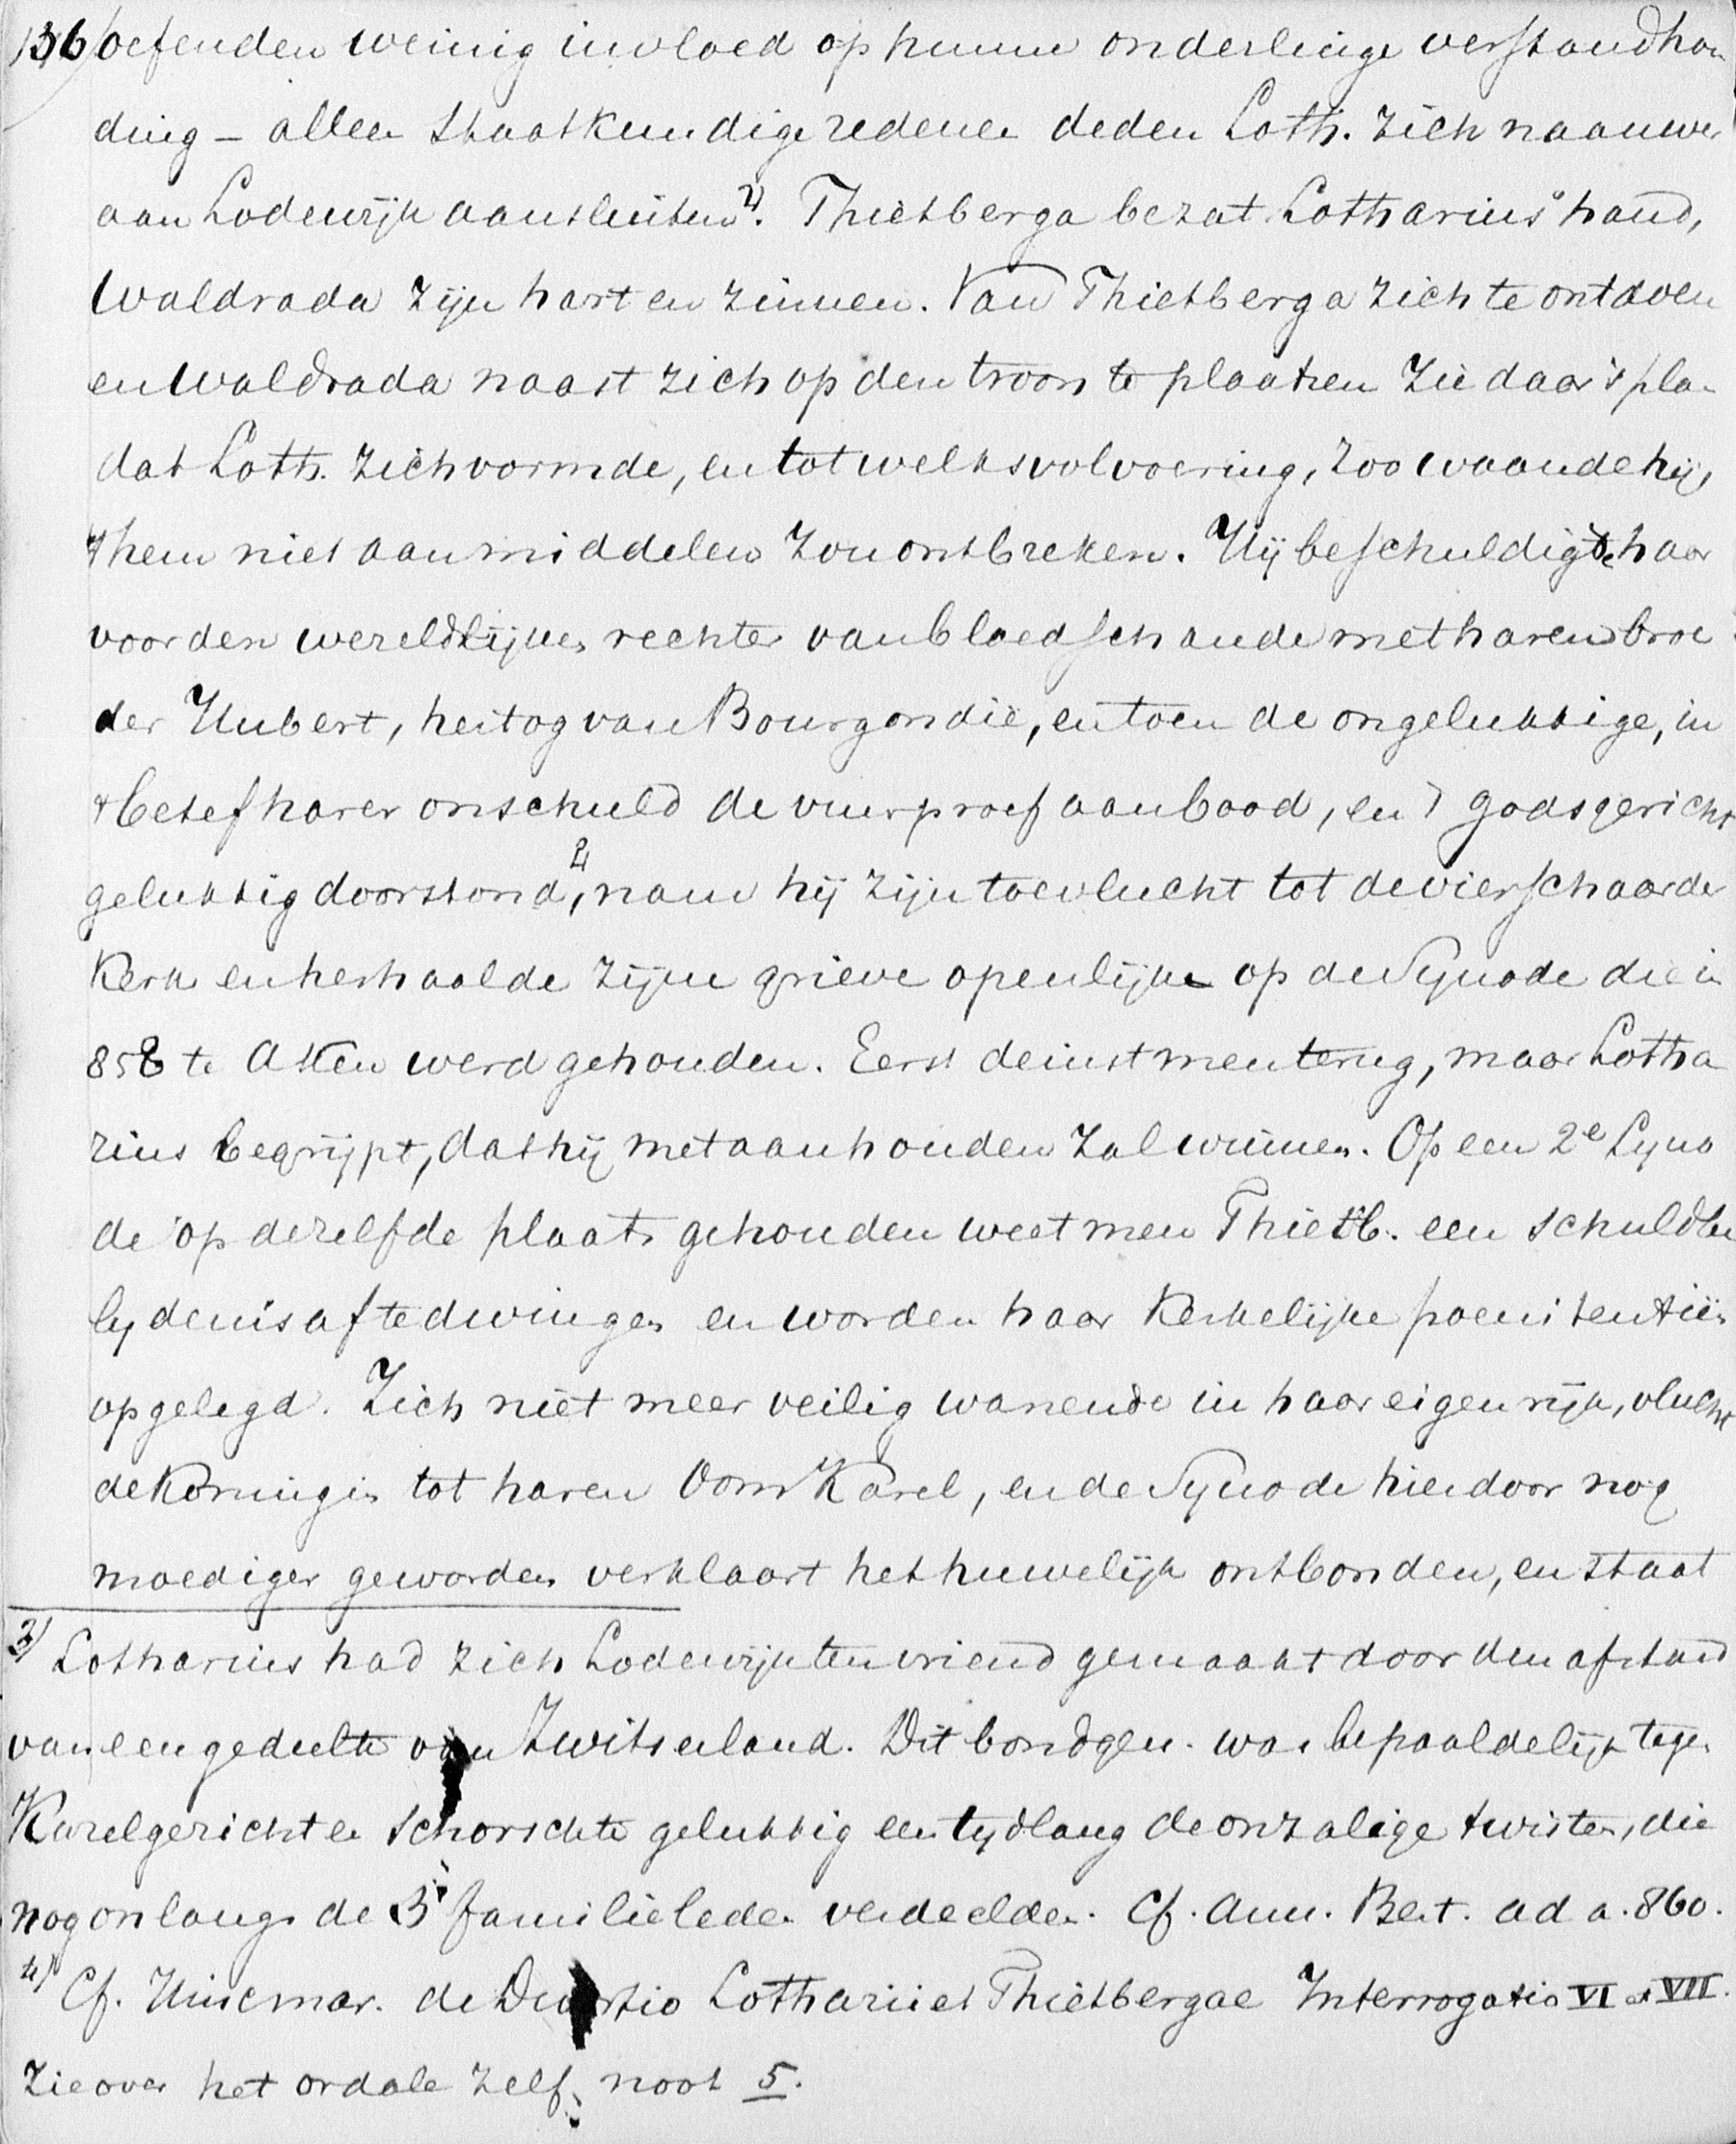 136/ oefenden weinig invloed op hunne onderlinge verstandhou
ding – alleen staatkundige redenen deden Loth. zich naauwer
aan Lodewijk aansluiten 3). Thietberga bezat Lotharius' hand,
Waldrada zijn hart en zinnen. Van Thietberga zich te ontdoen
en Waldrada naast zich op den troon te plaatsen zie daar 't plan
dat Loth. zich vormde, en tot welks volvoering, zoo waande hij,
't hem niet aan middelen zou ontbreken. Hij beschuldigde haar
voor den wereldlijken rechter van bloedschande met haren broe
der Hubert, hertog van Bourgondië, en toen de ongelukkige, in
't besef harer onschuld de vuurproef aanbood, en 't godsgericht
gelukkig doorstond 4), nam hij zijn toevlucht tot de vierschaar der
Kerk en herhaalde zijne grieve openlijke op de Synode die in
858 te Aken werd gehouden. Eerst deinst men terug, maar Lotha
rius begrijpt, dat hij met aanhouden zal winnen. Op een 2e Syno
de op dezelfde plaats gehouden weet men Thietb. een schuldbe
lydenis af te dwingen en worden haar Kerkelijke poenitentiën
opgelegd. Zich niet meer veilig wanende in haar eigen rijk, vlucht
de Koningin tot haren Oom Karel, en de Synode hierdoor nog
moediger geworden verklaart het huwelijk ontbonden, en staat
3) Lotharius had zich Lodewijk ten vriend gemaakt door den afstand
van een gedeelte van Zwitserland. Dit bondgen. was bepaaldelijk tegen
Karel gericht en schorschte gelukkig een tydlang de onzalige twisten, die
nog onlangs de 3 familieleden verdeelden. Cf. Ann. Bert. ad a. 860.
4) Cf. Hincmar. de Divortio Lotharii et Thietbergae Interrogatio VI et VII.
Zie over het ordale zelf, noot 5.